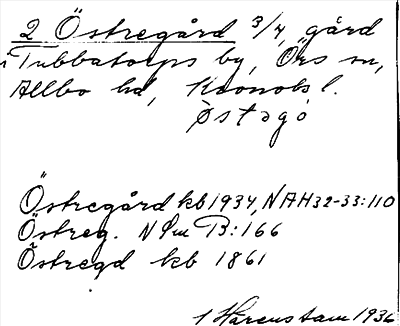 2 Östregård 3/4, gård
i Tubbatorps by, Örs sn,
Allbo hd, Kronobs l.
Östregård kb 1934, NAH 32-33:110
Östreg. N Sm B:166
Östregd kb 1861
Harenstam 1936